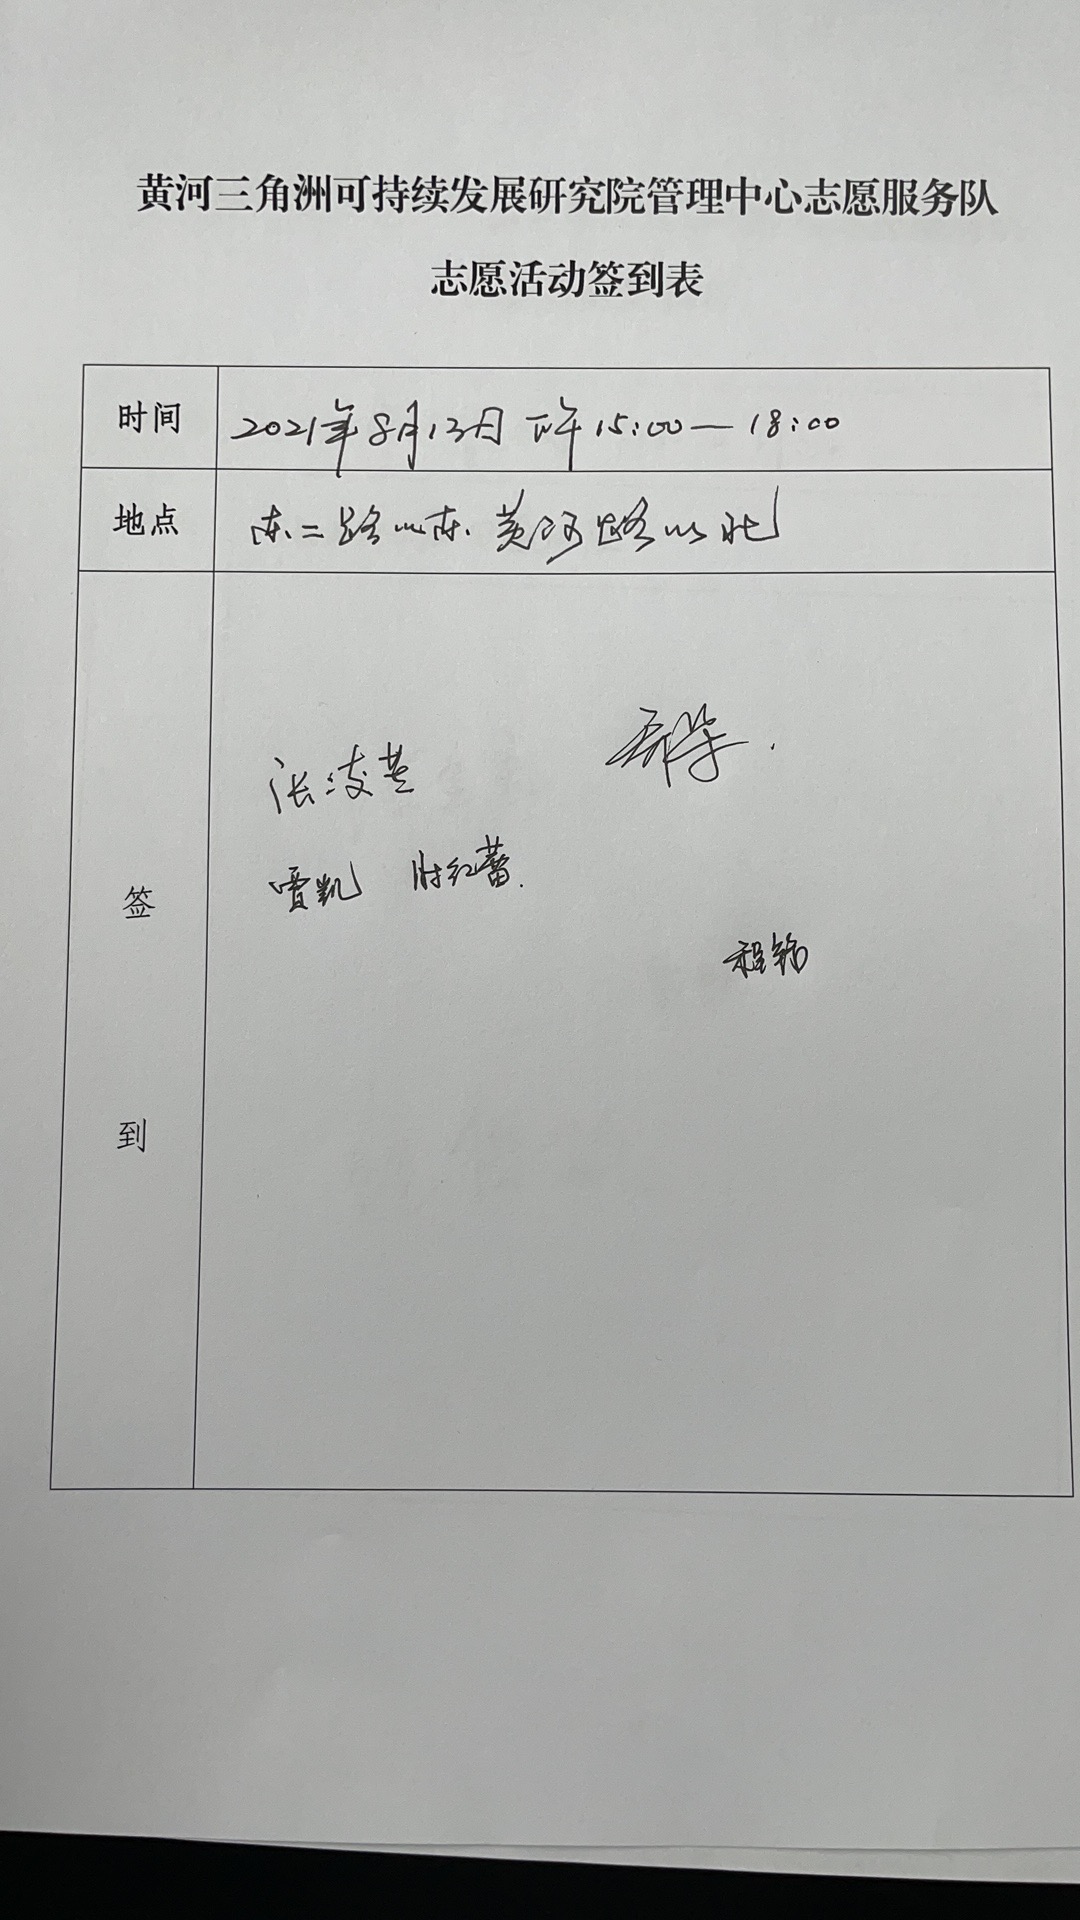 黄河三角洲可持续发展研究院管理中心志愿服务队
志愿活动签到表
时间 2021年8月13日 下午 15:00—18:00
地点 东二路以东、黄河路以北
签到
张凌芸
贾凯 红蕾
程